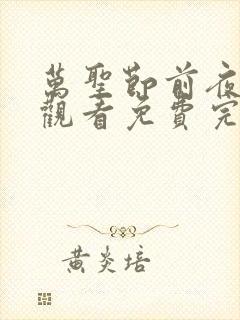 萬聖節前夜
觀看免費完
黃炎培